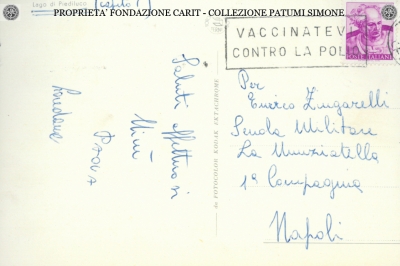 PROPRIETA' FONDAZIONE CARIT - COLLEZIONE PATUMI SIMONE
Lago di Piediluco
VACCINATEV
CONTRO LA POLI
POSTE ITALIANE
Saluti affettuosi
Mimì
PAOLA
Loredana
da FOTOCOLOR KODAK EKTACHROME
Per
Enrico Zingarelli
Scuola Militare
La Nunziatella
1ª Compagnia
Napoli